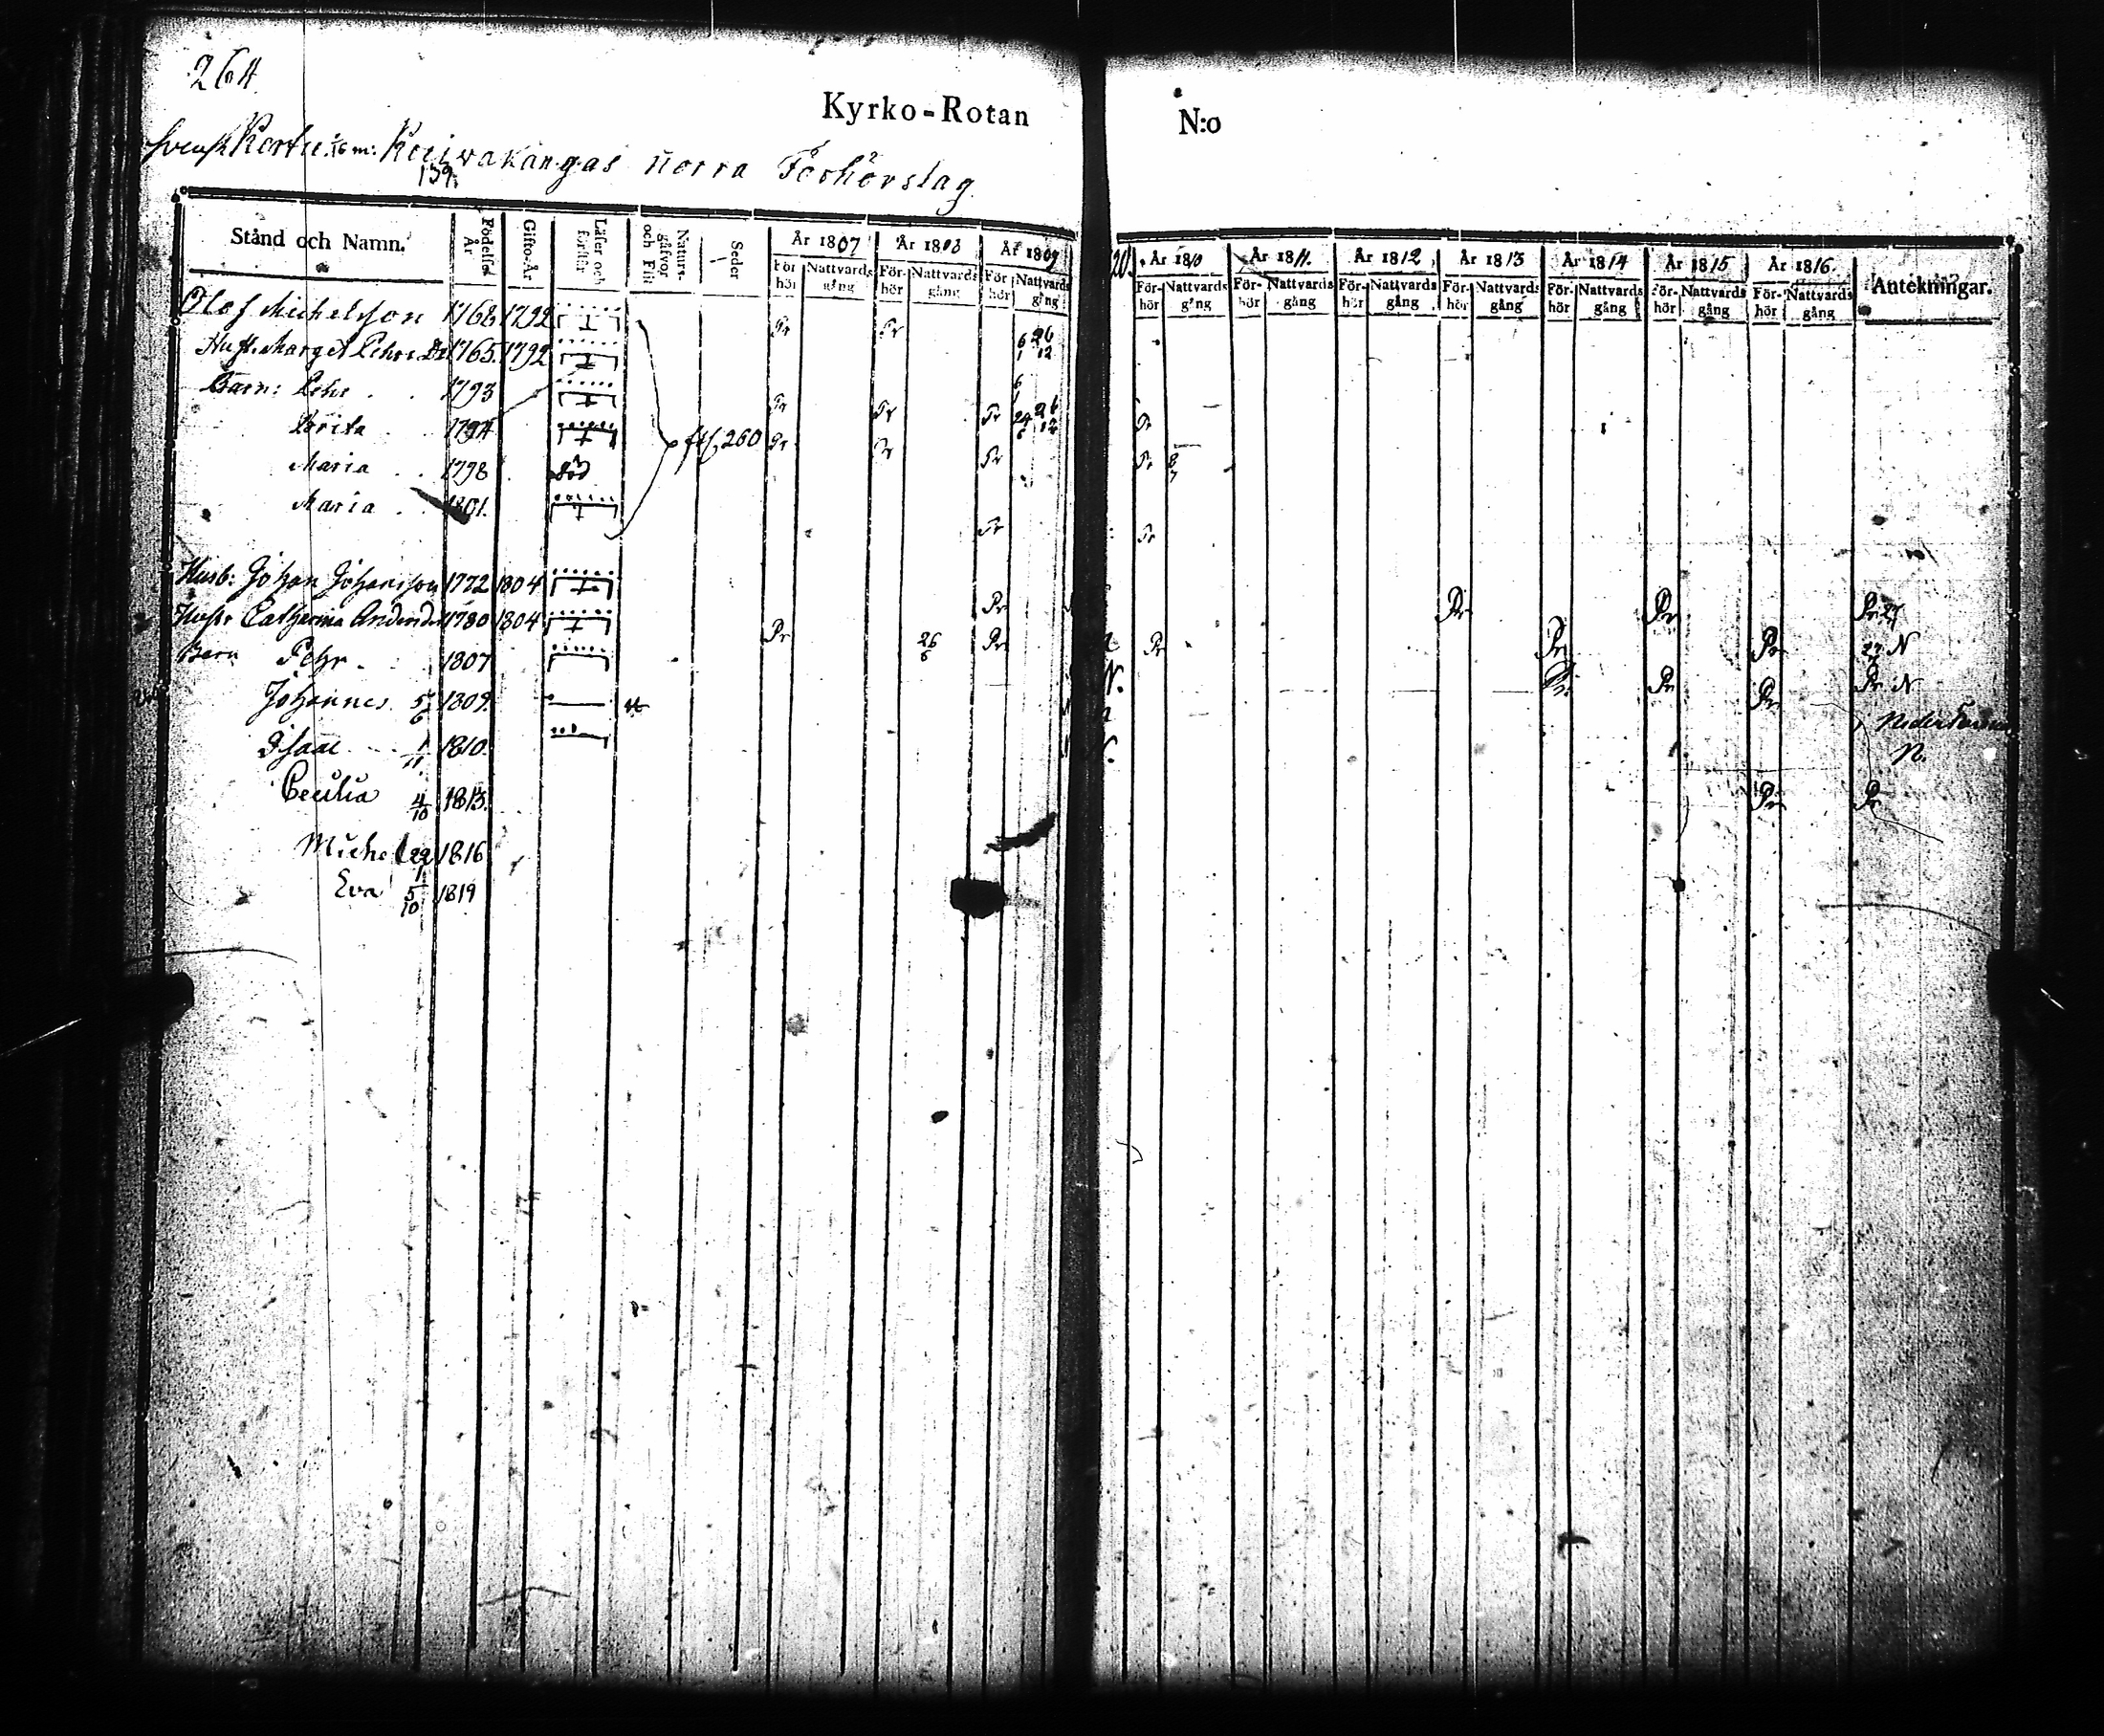 264
Kyrko-Rotan N:o
Koiwakangas norra Förhörslag
139.
Stånd och Namn. Födelse År Gifto-År Läser och förstår Naturs-gåfvor och Flit Seder År 1807 År 1808 År 1809 År 1810 År 1811. År 1812 År 1813 År 1814 År 1815 År 1816. Antekningar.
För-hör Nattvards gång För-hör Nattvards gång För-hör Nattvards gång För-hör Nattvards gång För-hör Nattvards gång För-hör Nattvards gång För-hör Nattvards gång För-hör Nattvards gång För-hör Nattvards gång För-hör Nattvards gång
Olof Michelsson 1768 1792 Pr Pr
Hust. Marget Pehrs Dr 1765. 1792 6/1 26/12
Barn: Pehr 1793 Pr Pr Pr Pr
Brita 1794 260 Pr Pr Pr Pr
Maria 1798 död
Maria 1801. Pr Pr
Husb: Johan Johansson 1772 1804 Pr Pr Pr Pr
Hustr Catharina Anders Dr 1780 1804 Pr 26/6 Pr Pr Pr Pr N
Barn Pehr 1807 N. Pr Pr Pr N
Johannes 5/6 1809.
Isaac 1/11 1810. N.
Cecilia 4/10 1813. Pr Pr
Michel 29/1 1816
Eva 5/10 1819